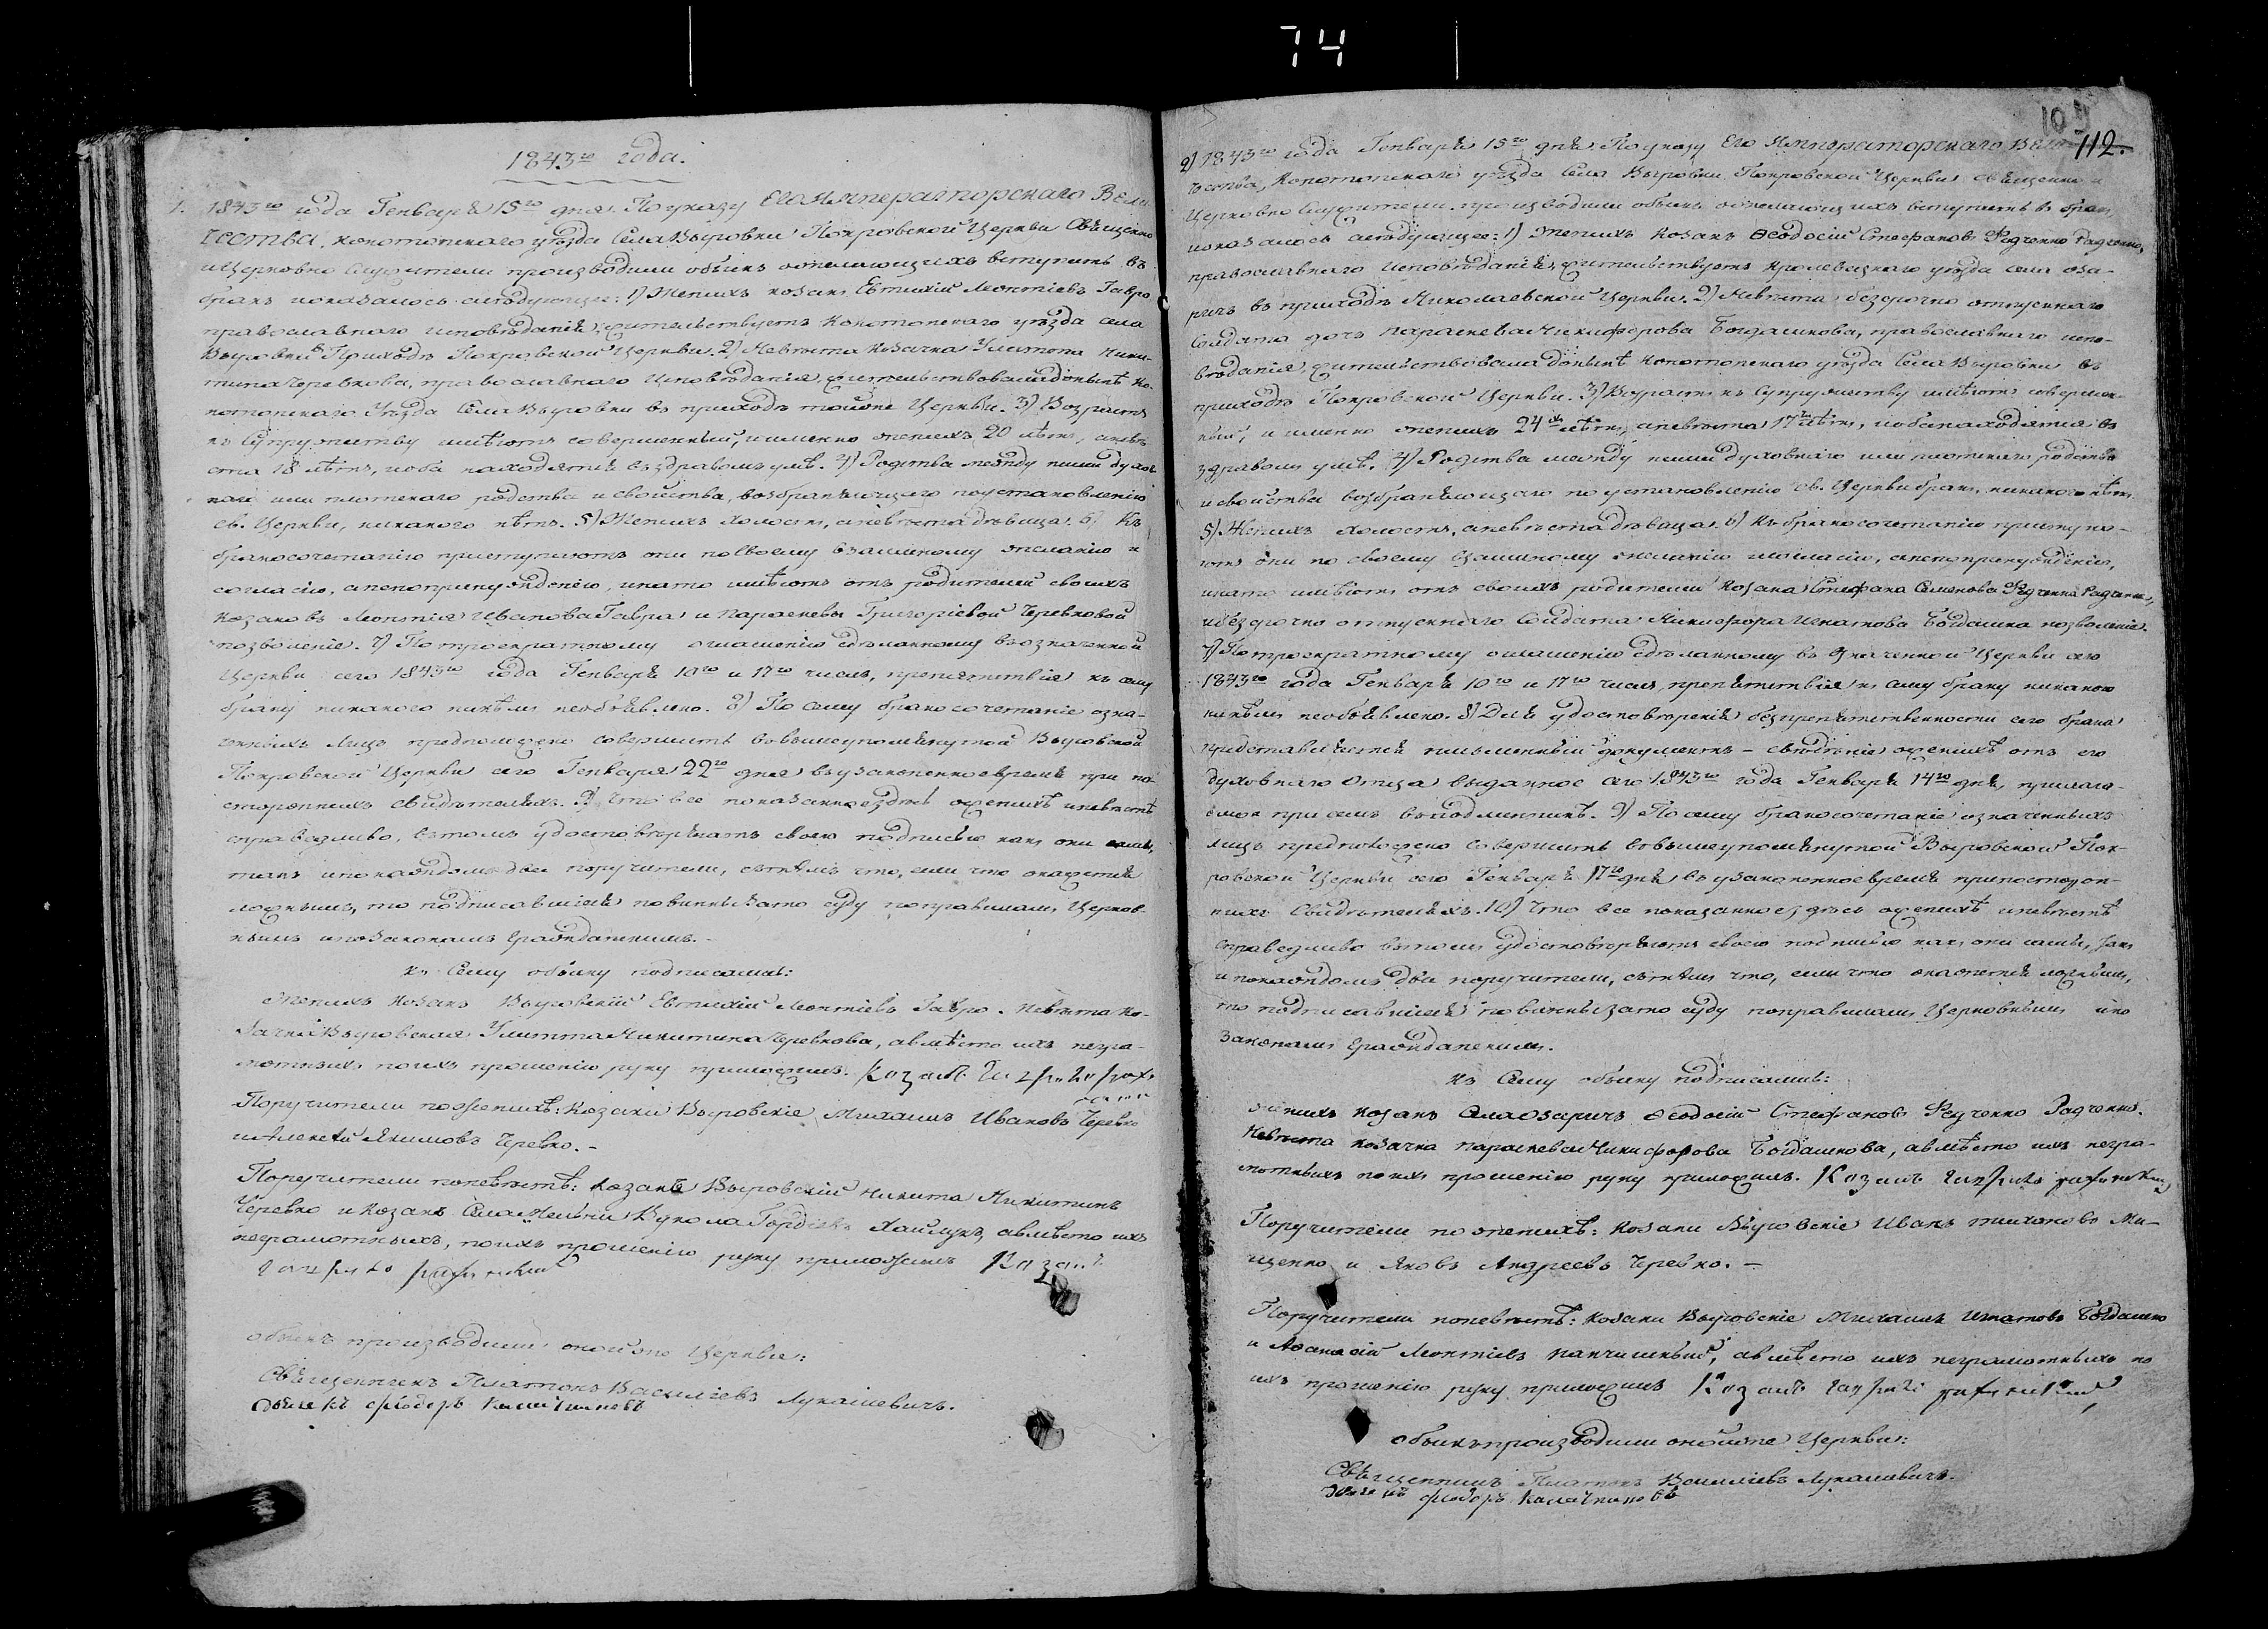 74
1843го года.
1. 1843го года Генваря 15го дня. По указу Его Императорскаго Вели-
чества, Конотопскаго уѣзда села Выровки Покровской Церкви Священно
и Церковно служители производили обыскъ о желающихъ вступить въ
бракъ и оказалось слѣдующее: 1) Женихъ козакъ Евтихій Леонтіевъ Гавро
православнаго исповѣданія, жительствуетъ Конотопскаго уѣзда села
Выровки въ Приходѣ Покровской Церкви. 2) Невѣста козачка Улита Ники-
тина Черевкова, православнаго исповѣданія, жительствовала донынѣ Ко-
нотопскаго Уѣзда Села Выровки въ приходѣ тойже Церкви. 3) Возрастъ
къ супружеству имѣютъ совершенный, и именно женихъ 20 лѣтъ, а невѣ-
ста 18 лѣтъ, и оба находятся въ здравомъ умѣ. 4) Родства между ними духов-
наго или плотскаго родства и свойства, возбраняющаго по установленію
св. Церкви, никакого нѣтъ. 5) Женихъ холостъ, а невѣста дѣвица. 6) Къ
бракосочетанію приступаютъ они по своему взаимному желанію и
согласію, а не по принужденію, и на то имѣютъ отъ родителей своихъ
козаковъ Леонтія Иванова Гавра и Параскевы Григоріевой Черевковой
позволеніе. 7) По троекратному оглашенію сдѣланному въ означенной
Церкви сего 1843го года Генваря 10го и 17го числъ, препятствія къ сему
браку никакого никѣмъ необъявлено. 8) По сему бракосочетаніе озна-
ченныхъ лицъ предположено совершить въ вышеупомянутой Выровской
Покровской Церкви сего Генваря 22го дня въ узаконенное время при по-
стороннихъ свидѣтеляхъ. 9) Что все показанное здѣсь о женихѣ и невѣстѣ
справедливо, въ томъ удостовѣряютъ своею подписью какъ они сами,
такъ и по каждомъ два поручители, съ тѣмъ что, если что окажется
ложнымъ, то подписавшіеся повинны за то суду по правиламъ Церков-
нымъ и по законамъ Гражданскимъ.
Къ Сему обыску подписались:
Женихъ козакъ Выровскій Евтихій Леонтіевъ Гавро. Невѣста ко-
зачка Выровская Улита Никитина Черевкова, а вмѣсто ихъ негра-
мотныхъ по ихъ прошенію руку приложилъ. Козакъ
Поручители по женихѣ: Козаки Выровскіе Михаилъ Ивановъ Черевко
и Алексѣй Якимовъ Черевко.
Поручители по невѣстѣ: Козакъ Выровскій Никита Никитинъ
Черевко и Козакъ Села Гордіевъ Хайлукъ, а вмѣсто ихъ
неграмотныхъ, по ихъ прошенію руку приложилъ Козакъ
Обыскъ производили оной же Церкви:
Священникъ Платонъ Василіевъ Лукашевичъ.
Федоръ
109
112.
2) 1843го года Генваря 15го дня. По указу Его Императорскаго Вели-
чества, Конотопскаго уѣзда Села Выровки Покровской Церкви священно и
Церковно служители производили обыскъ о желающихъ вступить въ бракъ,
и оказалось слѣдующее: 1) Женихъ козакъ Ѳеодосій Стефановъ Радченко,
православнаго исповѣданія, жительствуетъ Кролевецкаго уѣзда села Оза-
ричъ въ приходѣ Николаевской Церкви. 2) Невѣста безсрочно отпускнаго
Солдата дочь Параскева Никифорова Богдашкова, православнаго испо-
вѣданія, жительствовала донынѣ Конотопскаго уѣзда Села Выровки въ
приходѣ Покровской Церкви. 3) Возрастъ къ Супружеству имѣютъ совершен-
ный, и именно женихъ 24 лѣтъ, а невѣста 17 лѣтъ, и оба находятся въ
здравомъ умѣ. 4) Родства между ними духовнаго или плотскаго родства
и свойства возбраняющаго по установленію св. Церкви бракъ, никакого нѣтъ.
5) Женихъ холостъ, а невѣста дѣвица. 6) Къ бракосочетанію приступа-
ютъ они по своему взаимному желанію и согласію, а не по принужденію,
и на то имѣютъ отъ своихъ родителей Козака Стефана Семенова Радченка,
и безсрочно отпускнаго Солдата Никифора Игнатова Богдашка позволеніе.
7) По троекратному оглашенію сдѣланному въ означенной Церкви сего
1843го года Генваря 10го и 17го числъ, препятствія къ сему браку никакого
никѣмъ необъявлено. 8) Для удостовѣренія безпрепятственности сего брака
представляется письменный документъ – свѣдѣніе о женихѣ отъ его
духовнаго Отца выданное сего 1843го года Генваря 14го дня, прилага-
емое при семъ въ подлинникѣ. 9) По сему бракосочетаніе означенныхъ
лицъ предположено совершить въ вышеупомянутой Выровской Пок-
ровской Церкви сего Генваря 17го дня, въ узаконенное время при посторон-
нихъ Свидѣтеляхъ. 10) Что все показанное здѣсь о женихѣ и невѣстѣ
справедливо въ томъ удостовѣряютъ своею подписью какъ они сами, такъ
и по каждомъ два поручители, съ тѣмъ что, если что окажется ложнымъ,
то подписавшіеся повинны за то суду по правиламъ Церковнымъ и по
законамъ Гражданскимъ.
Къ Сему обыску подписались:
Женихъ козакъ Села Озаричъ Ѳеодосій Стефановъ Радченко.
Невѣста козачка Параскева Никифорова Богдашкова, а вмѣсто ихъ негра-
мотныхъ по ихъ прошенію руку приложилъ. Козакъ
Поручители по женихѣ: Козаки Выровскіе Иванъ Тихоновъ Ми-
щенко и Яковъ Андреевъ Черевко. –
Поручители по невѣстѣ: Козаки Выровскіе Михаилъ Игнатовъ Богдашко
и Аѳанасій Леонтіевъ, а вмѣсто ихъ неграмотныхъ по
ихъ прошенію руку приложилъ Козакъ
Обыскъ производили оной же Церкви:
Священникъ Платонъ Василіевъ Лукашевичъ.
Федоръ